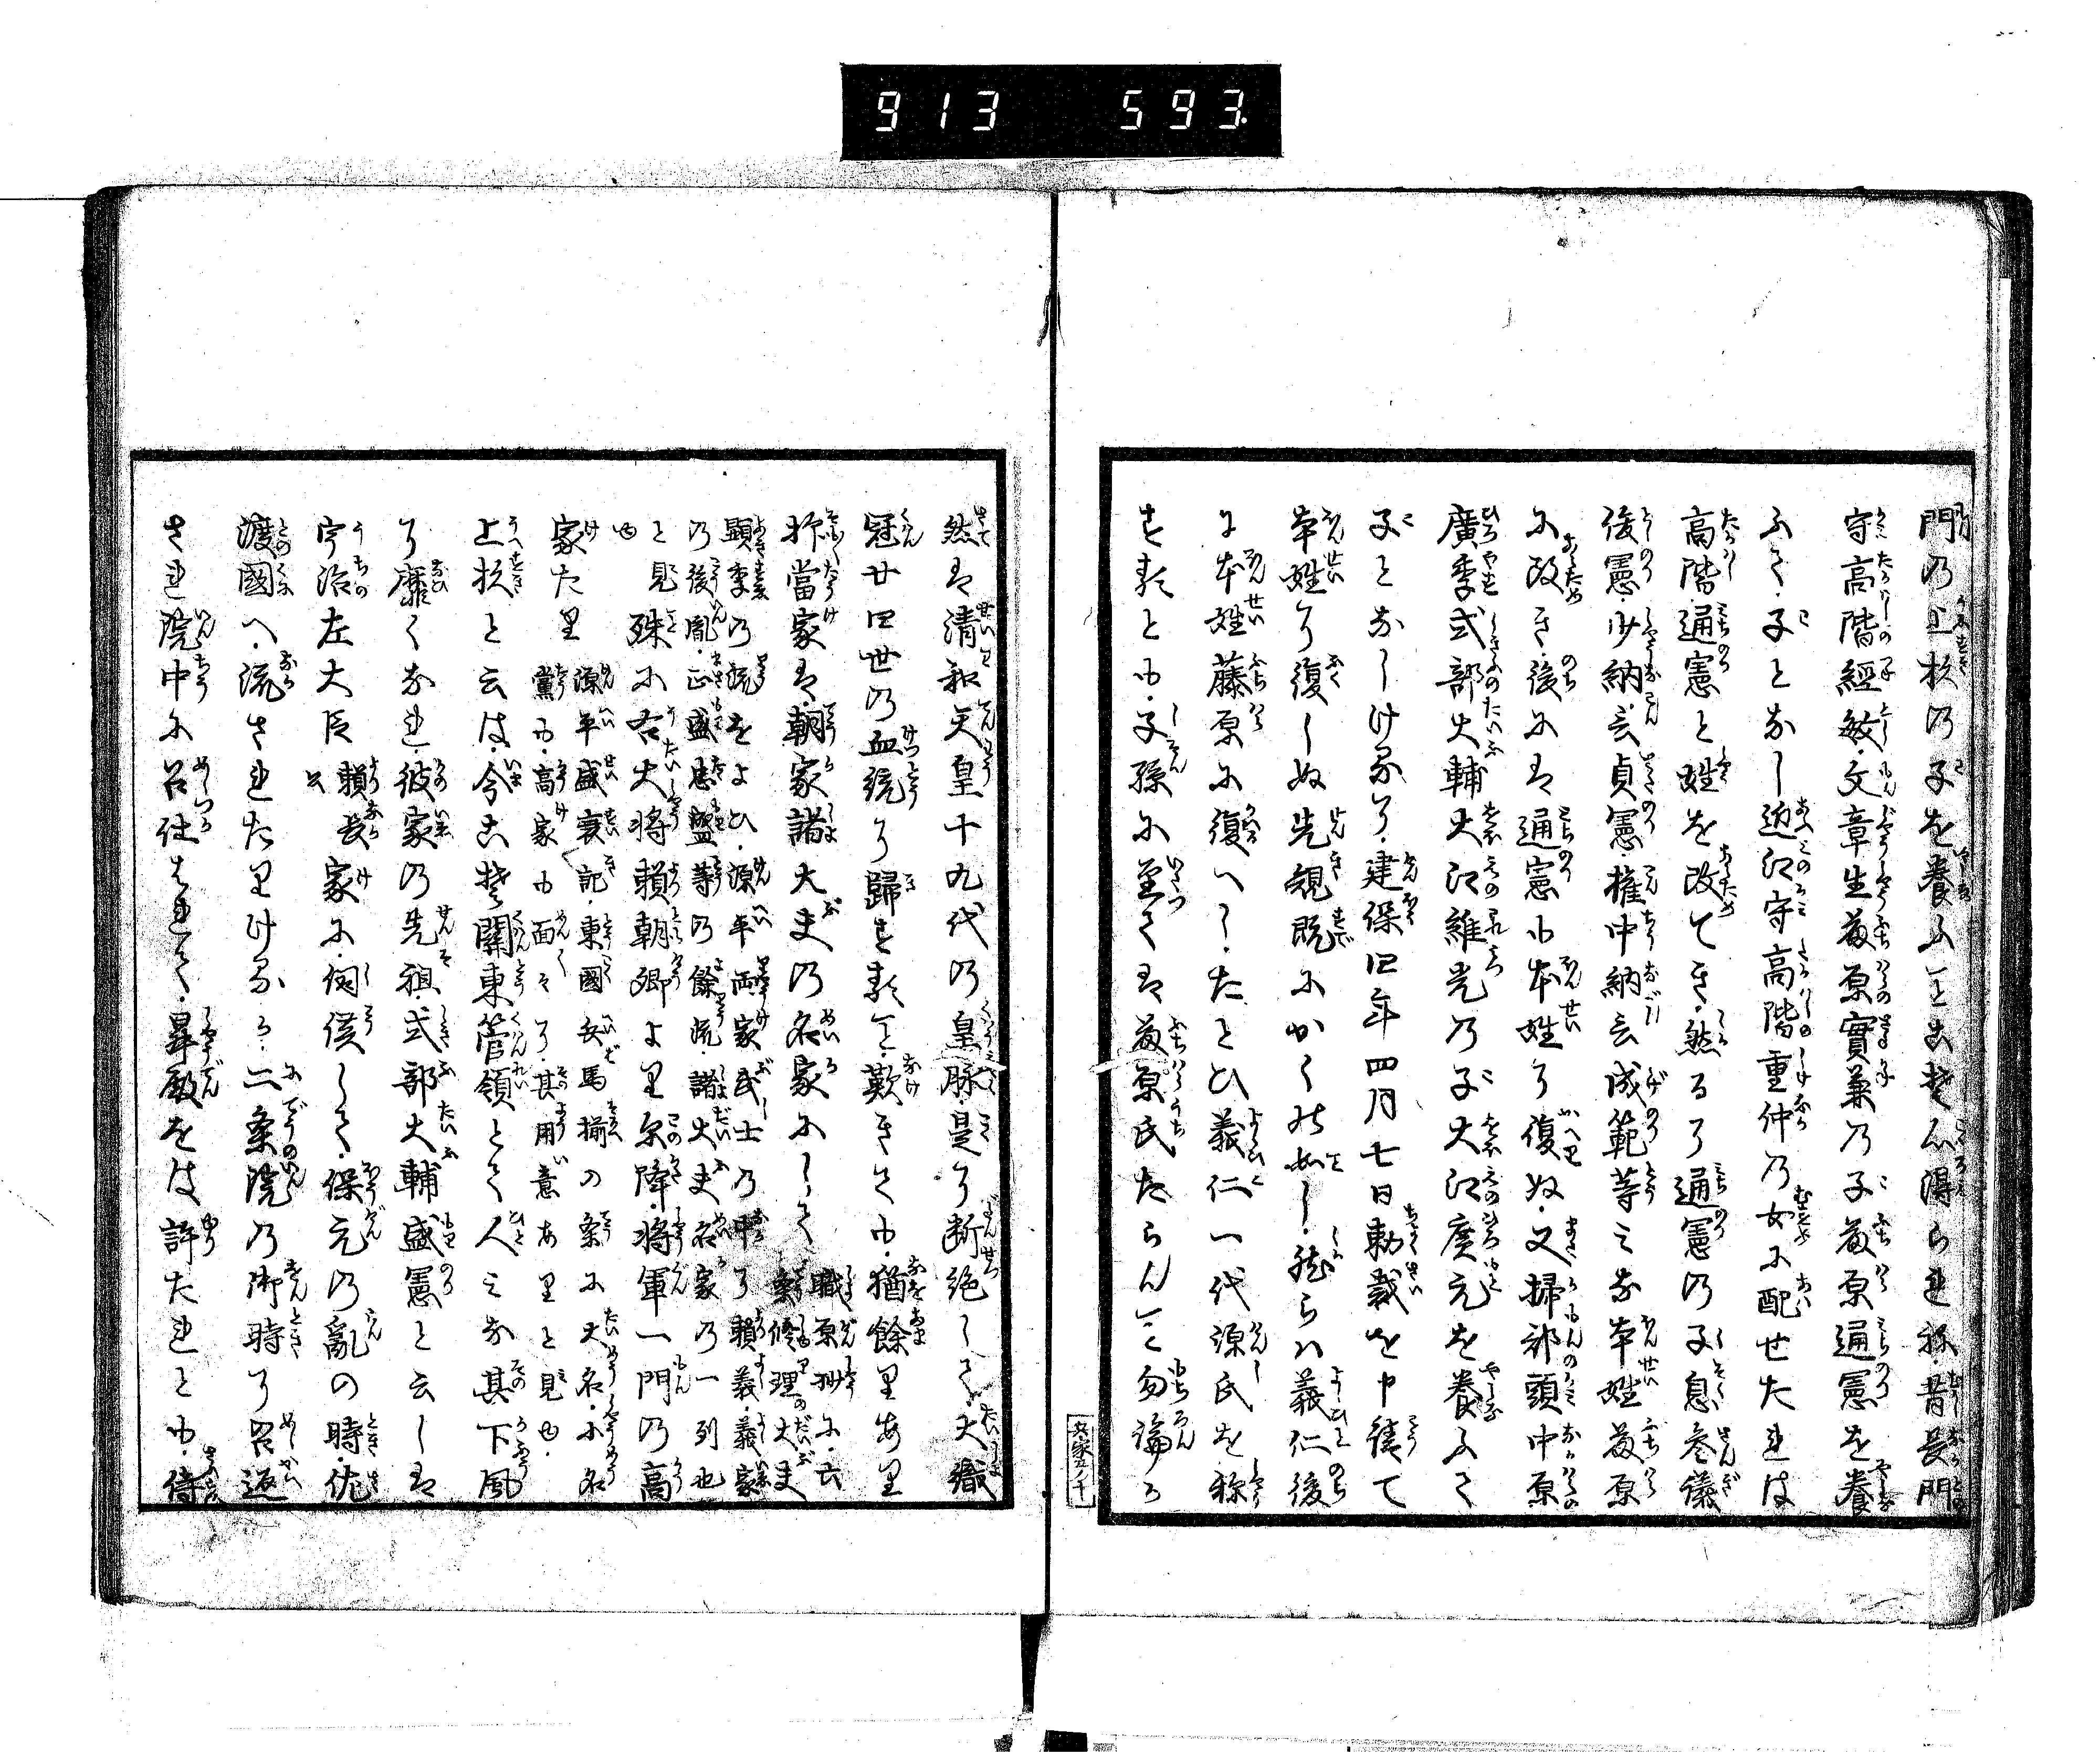 913 593.
門の上杉の子を養ふことこそ心得られね.昔長門
守高階經敏.文章生藤原實兼の子藤原通憲を養
ふて.子となし近江守高階重仲の女に配せたれは
高階通憲と姓を改てき.然るに通憲の子息参議
俊憲.少納言貞憲.権中納言成範等みな本姓藤原
に改き.後には通憲も本姓に復ぬ.又掃部頭中原
廣季式部大輔大江維光の子大江廣元を養ふて
子となしけるに.建保四年四月七日勅裁を申請て
本姓に復しぬ先規既にかくの如し.然らハ義仁後
に本姓藤原に復へし.たとひ義仁一代源氏を稱
すとも.子孫に至ては藤原氏たらんこと勿論か
兵家五ノ十
然は清和天皇十九代の皇脉.是に断絶して.大織
冠廿四世の血統に歸すこと.歎きても.猶餘りあり
抑當家は.朝家諸大夫の名家にして
職原抄に.六
條修理大夫
顕季の流をよひ.源平両家武士の中に頼義.義家
の後胤.正盛忠盛等の餘流.諸大夫名家の一列也
と見
也
殊に右大将頼朝卿より以降.将軍一門の高
家たり
源平盛衰記.東國兵馬揃の条に大名.小名
黨も.高家も面々に.其用意ありと見也.
上杉と云は.今こそ關東管領とて人みな其下風
に靡くなれ.彼家の先祖.式部大輔盛憲と云しは
宇治左大臣
頼長
公
家に.伺候して.保元の亂の時.佐
渡國へ.流されたりけるか.二条院の御時に召返
され院中に召仕はれて.昇殿をは許たれとも.侍